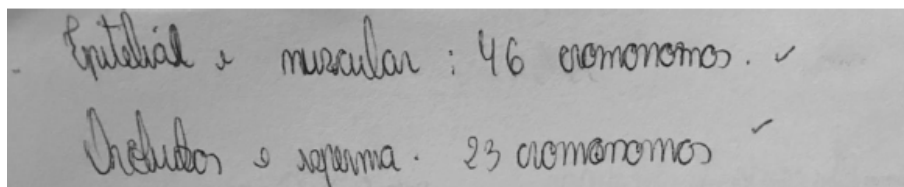 - Epitelial e muscular : 46 cromonomos. ✓
e esperma. 23 cromonomos ✓